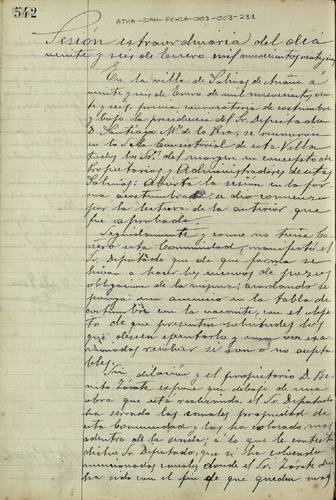 542
ATHA-DAH-FCHSA-003-003-231
Sesion extraordinaria del dia
veinte y seis de Enero mil novecientos veinte y seis
En la villa de Salinas de Añana a
veinte y seis de Enero de mil novecientos vein-
te y seis, previa convocatoria de costumbre
y bajo la presidencia del Sr. Diputado
D. Santiago Mª de la Peras, se reunieron
en la Sala Consistorial de esta Villa
todos los Sres. del margen en concepto de
Propietarios y Administradores de estas
Salinas: Abierta la sesion en la for-
ma acostumbrada, se dio comienzo
por la lectura de la anterior que
fue aprobada.
Seguidamente y como no tiene Ca-
ñero esta Comunidad, manifestó el
Sr. Diputado que de que forma se
habian a hacer las de pozos
obligacion de la misma; acordando se
ponga un anuncio en la tabla de
costumbre con la vacante, con el obje-
to de que presenten solicitudes los
que deseen ejecutarlo y una vez exa-
minadas resolver si son o no acepta-
bles.
Sin dilación, y el propietario D. Be-
nito Zarate expuso que debajo de una
obra que está realizando, el Sr. Diputado
ha serrado las canales propiedad de
esta Comunidad y las ha colocado mas
adentro de la senda; a lo que le contestó
dicho Sr. Diputado, que si ha colocado
mencionadas canales donde el Sr. Zarate di-
ce ha sido con el fin de que queden mas